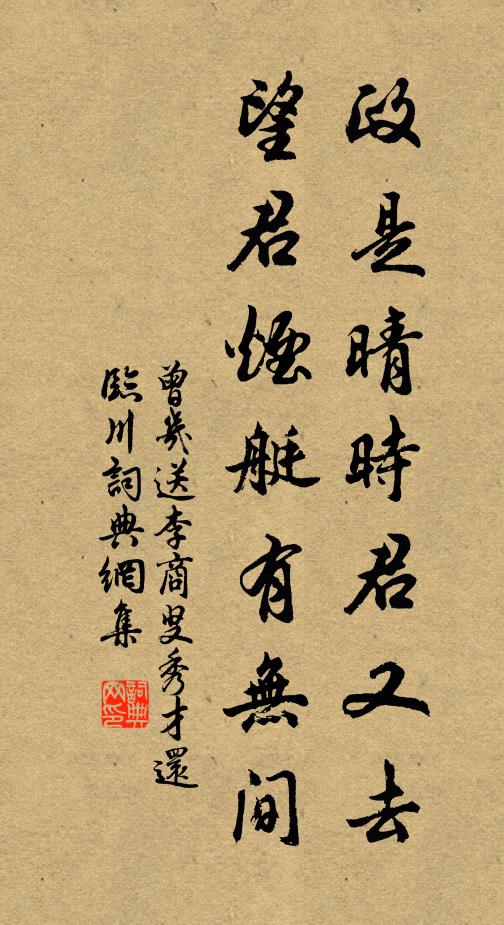 政是晴時君又去
望君煙艇有無間
曾幾送李商叟秀才還
臨川詞典網集
詞典网印